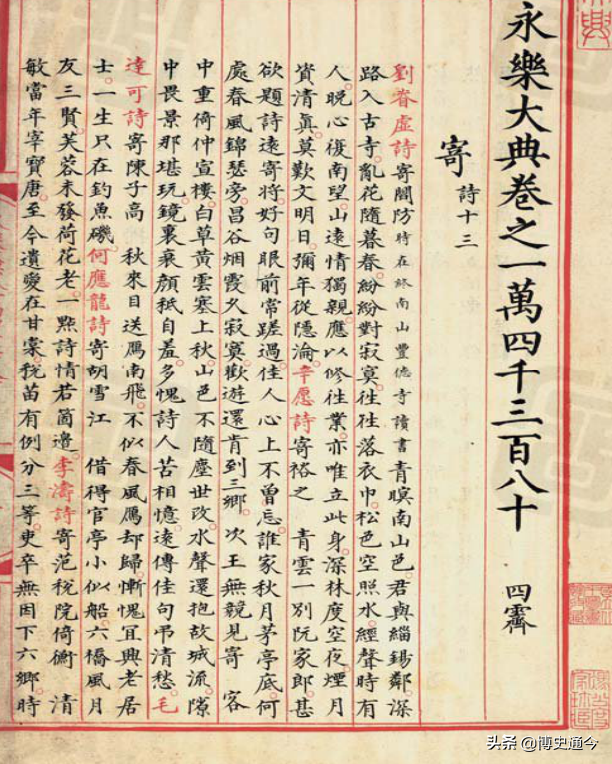 永樂大典卷之一萬四千三百八十 四霽
寄 詩十三
劉眘虛詩寄閻防時在終南山豐德寺讀書青暝南山邑君與緇錫鄰深
路入古寺亂花隨暮春紛紛對寂寞徃徃落衣巾松色空照水經聲時有
人晚心復南望山遠情獨親應以修徃業亦唯立此身深林度空夜煙月
資清真莫歎文明日彌年從隱淪辛愿詩寄裕之 青雲一別阮家郎甚
欲題詩遠寄將好句眼前常蹉過佳人心上不曾忘誰家秋月茅亭底何
處春風錦瑟旁昌谷烟霞久寂寞歡遊還肯到三鄉 次王無競見寄 客
中重倚仲宣樓白草黃雲塞上秋山色不隨塵世改水聲還抱故城流隙
中畏景那堪玩鏡裏衰顔秖自羞多愧詩人苦相憶遠傳佳句弔清愁毛
達可詩寄陳子高 秋來目送鴈南飛不似春風鴈却歸慚愧宜興老居
士一生只在釣魚磯何應龍詩寄胡雪江 借得官亭小似船六橋風月
友三賢芙蓉未發荷花老一點詩情若箇邊李濤詩寄范稅院倚衡 清
敏當年宰寶唐至今遺愛在甘棠稅苗有例分三等吏卒無因下六鄉時
头条 @博史通今